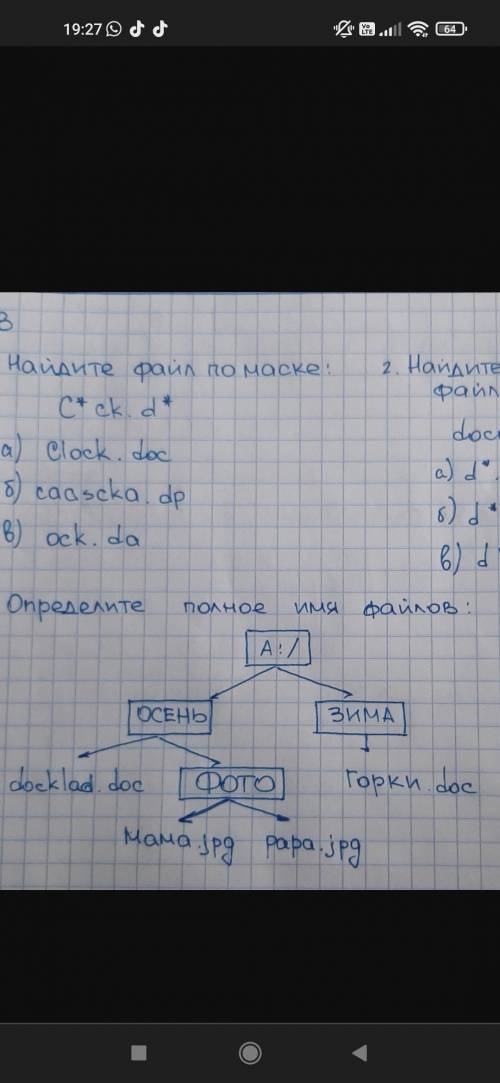 19:27
VoLTE
64
в
Найдите файл по маске:
C*ck.d*
а) Clock.doc
б) caascka.dp
в) ock.da
2. Найдите
файл
doc
а) d*.
б) d*
в) d
Определите полное имя файлов:
A:/
ОСЕНЬ ЗИМА
docklad.doc ФОТО горки.doc
мама.jpg papa.jpg